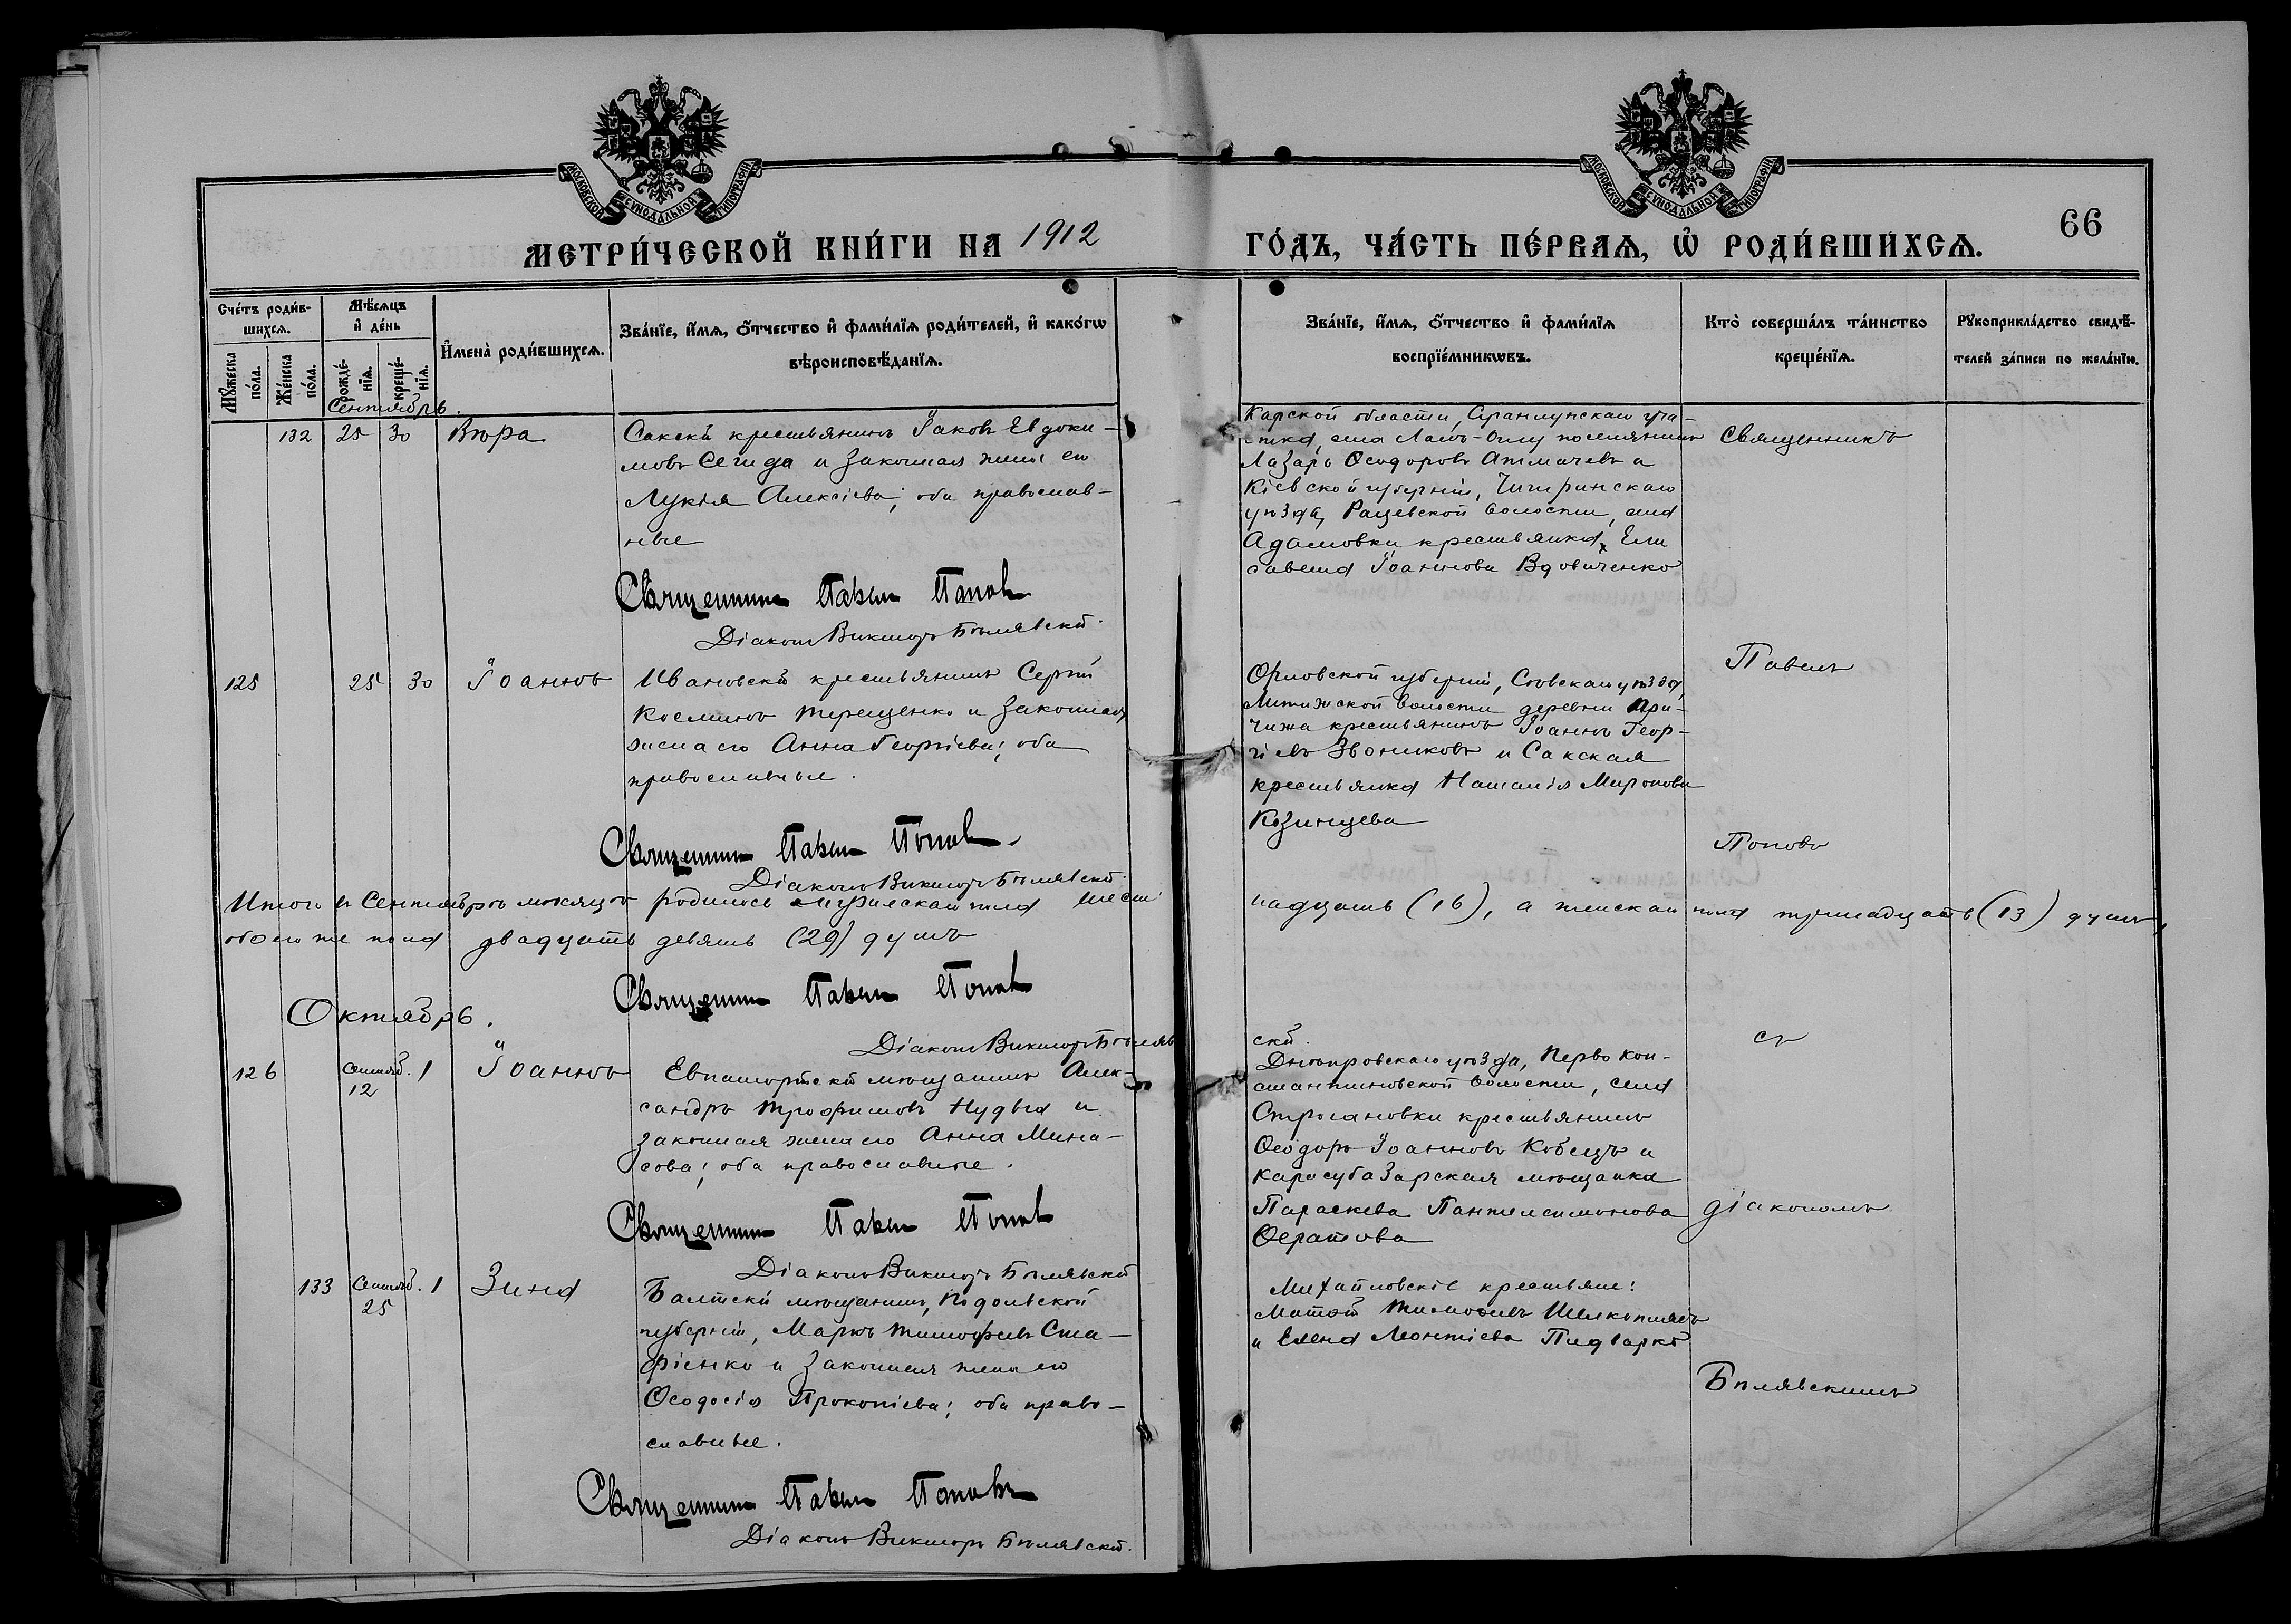 МОСКОВСКОЙ СѴНОДАЛЬНОЙ ТИПОГРАФІИ
МОСКОВСКОЙ СѴНОДАЛЬНОЙ ТИПОГРАФІИ
МЕТРИ́ЧЕСКОЙ КНИ́ГИ НА 1912 ГО́ДЪ, ЧА́СТЬ ПЕ́РВАѦ, Ѡ҆ РОДИ́ВШИХСѦ.
66
Сче́тъ роди́в-
шихсѧ.
Мꙋ́жеска по́ла.
Же́нска по́ла.
Мѣ́сѧцъ
и҆ де́нь
рожде́-нїѧ.
креще́-нїѧ.
И҆мена̀ роди́вшихсѧ.
Зва́нїе, и҆́мѧ, ѻ҆́тчество и҆ фами́лїѧ роди́телей, и҆ како́гѡ
вѣроисповѣ́данїѧ.
Зва́нїе, и҆́мѧ, ѻ҆́тчество и҆ фами́лїѧ
воспрїе́мникѡвъ.
Кто̀ соверша́лъ та́инство
креще́нїѧ.
Рꙋкоприкла́дство свидѣ́-
телей за́писи по жела́нїю.
Сентябрь.
132 25 30 Вѣра
Сакскій крестьянинъ Іаковъ Евдоки-
мовъ Сегида и законная жена его
Лукія Алексіева; оба православ-
ные
Священникъ Павелъ Поповъ
Діаконъ Викторъ Бѣлявскій.
Карской области, уча-
стка, села поселянинъ
Лазарь Ѳеодоровъ и
Кіевской губерніи, Чигиринскаго
уѣзда, Рацевской волости, села
Адамовки крестьянка Ели
савета Іоаннова Вдовиченко
Священникъ
125 25 30 Іоаннъ
Ивановскій крестьянинъ Сергій
Косминъ Терещенко и законная
жена его Анна Георгіева; оба
православные.
Священникъ Павелъ Поповъ
Діаконъ Викторъ Бѣлявскій.
Орловской губерніи, Сѣвскаго уѣзда,
Литижской волости деревни При-
чижа крестьянинъ Іоаннъ Геор-
гіевъ Звониковъ и Сакская
крестьянка Наталія Миронова
Козинцева
Павелъ
Поповъ
Итого въ Сентябрѣ мѣсяцѣ родилось мужескаго пола шест
надцать (16), а женскаго пола тринадцать (13) душъ,
обоего же пола двадцать девять (29) душъ
Священникъ Павелъ Поповъ
Діаконъ Викторъ Бѣляв
скій.
Октябрь.
126 Сентяб. 12 1 Іоаннъ
Евпаторійскій мѣщанинъ Алек-
сандръ Трофимовъ Нудьга и
законная жена его Анна Мина-
сова; оба православные.
Священникъ Павелъ Поповъ
Діаконъ Викторъ Бѣлявскій
Днѣпровскаго уѣзда, Перво Кон-
стантиновской волости, села
Строгановки крестьянинъ
Ѳеодоръ Іоанновъ Кобецъ и
Карасубазарская мѣщанка
Параскева Пантелеимонова
съ
діакономъ
133 Сентяб. 25 1 Зина
Балтскій мѣщанинъ, Подольской
губерніи, Маркъ Тимофеевъ Ста-
фіенко и законная жена его
Ѳеодосія Прокопіева; оба право-
славные.
Священникъ Павелъ Поповъ
Діаконъ Викторъ Бѣлявскій.
Михайловскіе крестьяне:
Матѳей Тимоѳеевъ
и Елена Леонтіева
Бѣлявскимъ